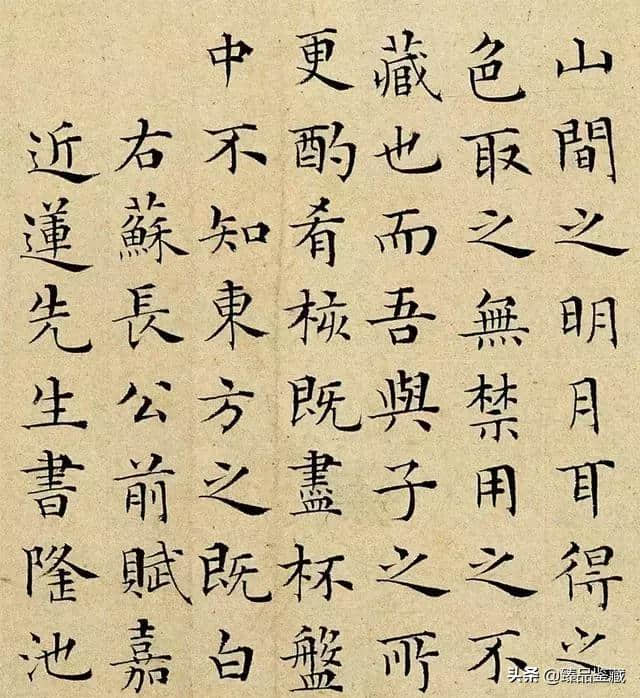 山間之明月耳得之
色取之無禁用之不
藏也而吾與子之所
更酌肴核既盡杯盤
中不知東方之既白
右蘇長公前賦嘉
近蓮先生書隆池
头条 @臻品鉴藏